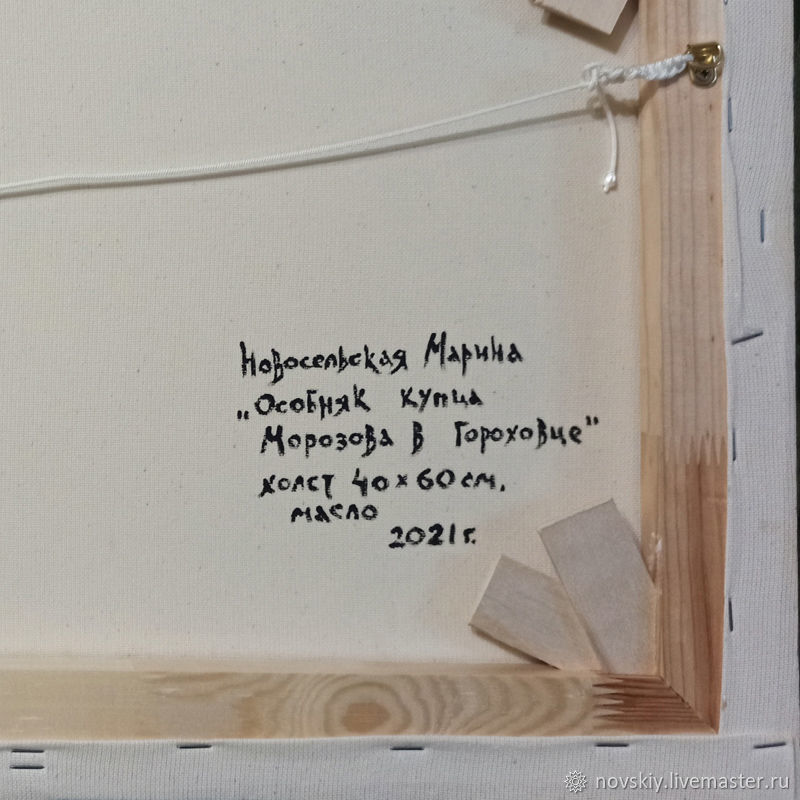 Новосельская Марина
„Особняк купца
Морозова в Гороховце"
холст 40×60 см.
масло
2021 г.
novskiy.livemaster.ru